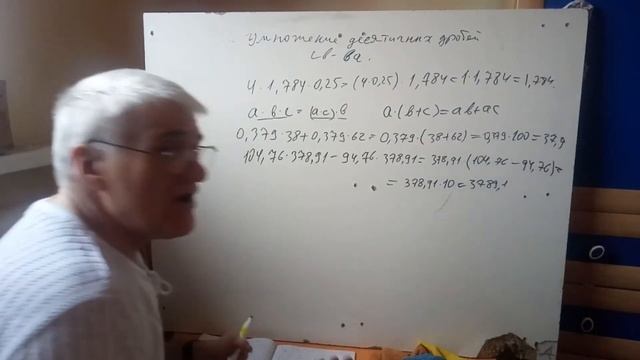 Умножение десятичных дробей
ab = ba.
4 · 1,784 · 0,25 = (4·0,25) · 1,784 = 1 · 1,784 = 1,784.
a · b · c = (ac) · b a · (b+c) = ab + ac
0,379 · 38 + 0,379 · 62 = 0,379 · (38 + 62) = 0,379 · 100 = 37,9
104,76 · 378,91 − 94,76 · 378,91 = 378,91 (104,76 − 94,76) =
= 378,91 · 10 = 3789,1